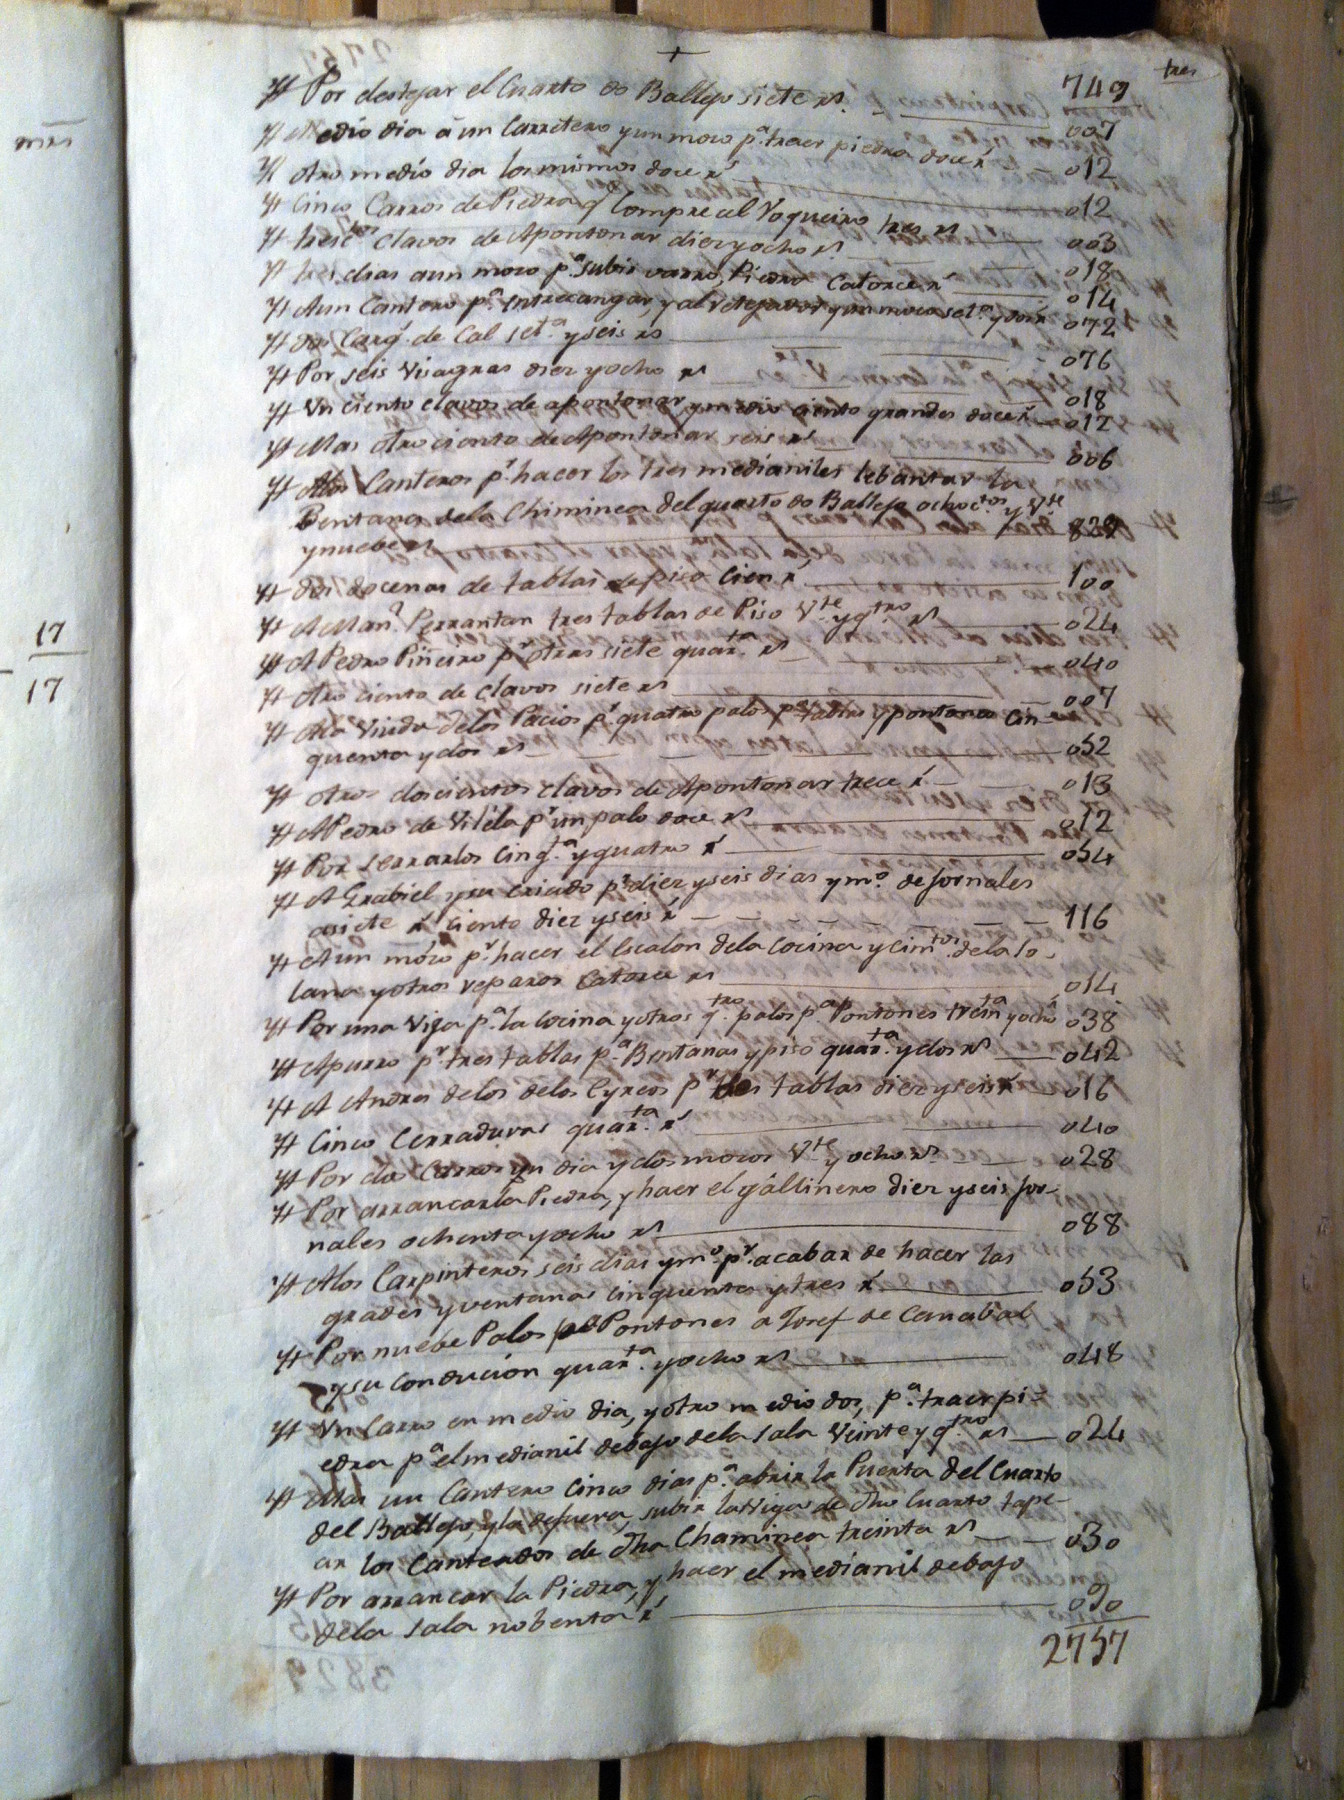 +
tres
749
Por destejar el Cuarto do Ballejo siete rs. 007
Medio dia á un Carretero y un moco pa. traer piedra doce rs 012
Otro medio dia los mismos doce rs 012
Cinco Carros de Piedra q Compre al Vaqueiro tres rs 003
tresctos Clavos de Apontonar diez y ocho rs. 018
tres dias a un moco pa. subir varro, Piedra Catorce rs 014
A un Cantero pa. entrecangar, y al retejador y un moco seta. y dois 072
dos Carg. de Cal seta. y seis rs 076
Por seis Visagras diez y ocho rs 018
Vn ciento clavos de apontonar y medio ciento grandes doce rs 012
Mas otro ciento de Apontonar seis rs 006
Alos Canteros pr. hacer los tres medianiles lebantar la
Bentana dela Chiminea del quarto do Ballejo ochoctos. y Vte
y nuebe rs 829
dos docenas de tablas de piso Cien rs 100
A Man. Perrantan tres tablas de Piso Vte. y qtro. rs 024
A Pedro Piñeiro pr otras siete quarta. rs 040
Otro ciento de clavos siete rs 007
Ala Viuda delos Pacios pr. quatro palos pa tablas y pontones Cin-
quenta y dos rs 052
Otros doscientos clavos de Apontonar trece rs 013
A Pedro de Vilela pr un palo doce rs 012
Por serrarlos Cinqta. y quatro rs 054
A Grabiel y su Criado pr diez y seis dias y mo. de Jornales
a siete rs ciento diez y seis rs 116
A un moco pr. hacer el Escalon dela Cocina y Cimtos. dela So-
lana y otros reparos Catorce rs 014
Por una Viga pa. la Cocina y otros qtro. palos pa. Pontones treinta y ocho 038
Apurro pr. tres tablas pa. Bentanas y piso quarta. y dos rs 042
A Andres delos delos Cyreos pr tres tablas diez y seis rs 016
Cinco Cerraduras quarta. rs 040
Por dos Carros un dia y dos mocos Vte. y ocho rs. 028
Por arrancar la Piedra, y haer el gallinero diez y seis Jor-
nales ochenta y ocho rs 088
Alos Carpinteros seis dias y mo. pr. acabar de hacer las
grades y ventanas cinquenta y tres rs 053
Por nuebe Palos Pontones a Josef de Canabal
y su condución quarta. y ocho rs 048
Vn Carro en medio dia, y otro medio dos, pa. traer pi-
edra pa. el medianil debajo dela Sala Veinte y qtro. rs 024
Mas un Cantero Cinco dias pa. abrir la Puerta del Cuarto
del Ballejo, y la defuera, subir la Viga de dho Cuarto tape-
ar los Canterdos de dha Chaminea treinta rs 030
Por arrancar la Piedra, y haer el medianil debajo
dela Sala nobenta rs 090
2757
mrs
17
17